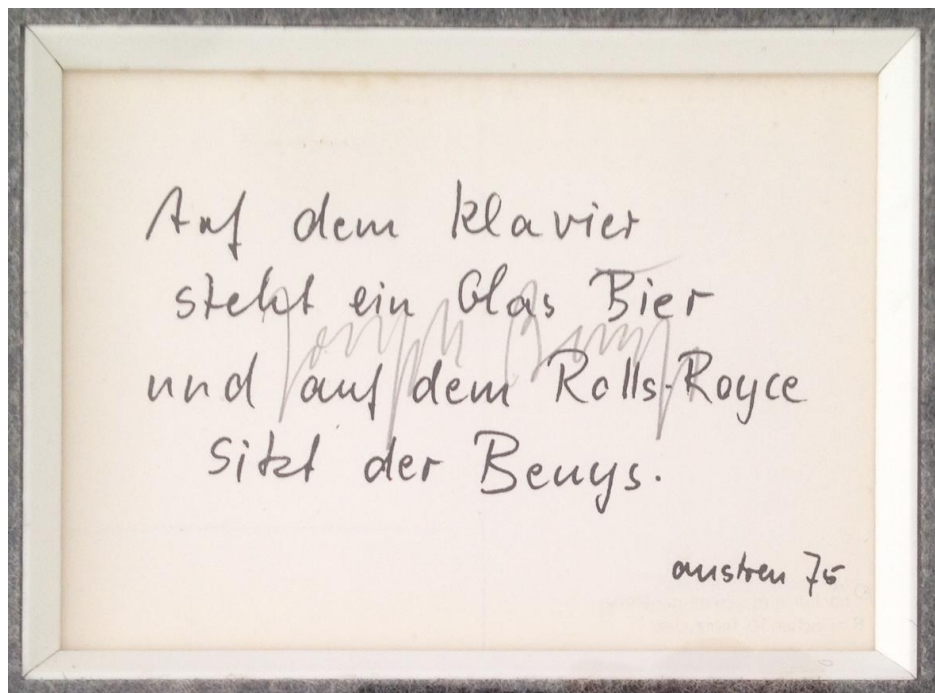 Auf dem Klavier
steht ein Glas Bier
und auf dem Rolls-Royce
sitzt der Beuys.
Joseph Beuys
austren 75